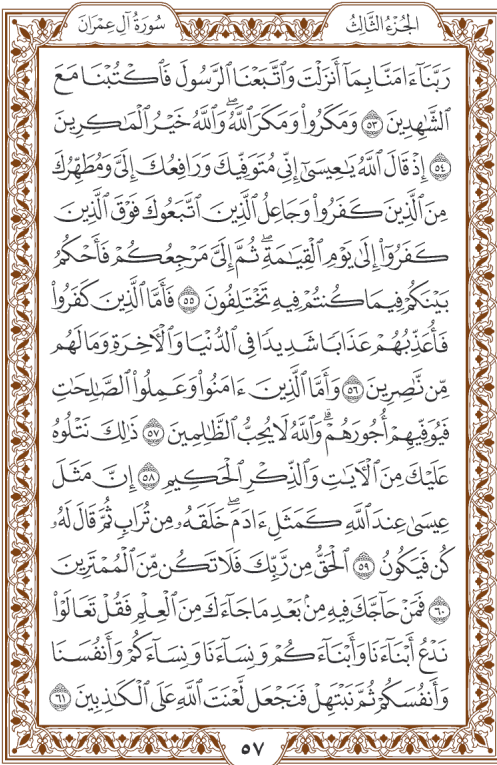 الجُزْءُ الثَّالِثُ
سُورَةُ آلِ عِمْرَانَ
رَبَّنَآ ءَامَنَّا بِمَآ أَنزَلْتَ وَٱتَّبَعْنَا ٱلرَّسُولَ فَٱكْتُبْنَا مَعَ
ٱلشَّٰهِدِينَ ٥٣ وَمَكَرُوا۟ وَمَكَرَ ٱللَّهُ ۖ وَٱللَّهُ خَيْرُ ٱلْمَٰكِرِينَ
٥٤ إِذْ قَالَ ٱللَّهُ يَٰعِيسَىٰٓ إِنِّى مُتَوَفِّيكَ وَرَافِعُكَ إِلَىَّ وَمُطَهِّرُكَ
مِنَ ٱلَّذِينَ كَفَرُوا۟ وَجَاعِلُ ٱلَّذِينَ ٱتَّبَعُوكَ فَوْقَ ٱلَّذِينَ
كَفَرُوٓا۟ إِلَىٰ يَوْمِ ٱلْقِيَٰمَةِ ۖ ثُمَّ إِلَىَّ مَرْجِعُكُمْ فَأَحْكُمُ
بَيْنَكُمْ فِيمَا كُنتُمْ فِيهِ تَخْتَلِفُونَ ٥٥ فَأَمَّا ٱلَّذِينَ كَفَرُوا۟
فَأُعَذِّبُهُمْ عَذَابًا شَدِيدًا فِى ٱلدُّنْيَا وَٱلْءَاخِرَةِ وَمَا لَهُم
مِّن نَّٰصِرِينَ ٥٦ وَأَمَّا ٱلَّذِينَ ءَامَنُوا۟ وَعَمِلُوا۟ ٱلصَّٰلِحَٰتِ
فَيُوَفِّيهِمْ أُجُورَهُمْ ۗ وَٱللَّهُ لَا يُحِبُّ ٱلظَّٰلِمِينَ ٥٧ ذَٰلِكَ نَتْلُوهُ
عَلَيْكَ مِنَ ٱلْءَايَٰتِ وَٱلذِّكْرِ ٱلْحَكِيمِ ٥٨ إِنَّ مَثَلَ
عِيسَىٰ عِندَ ٱللَّهِ كَمَثَلِ ءَادَمَ ۖ خَلَقَهُۥ مِن تُرَابٍ ثُمَّ قَالَ لَهُۥ
كُن فَيَكُونُ ٥٩ ٱلْحَقُّ مِن رَّبِّكَ فَلَا تَكُن مِّنَ ٱلْمُمْتَرِينَ
٦٠ فَمَنْ حَآجَّكَ فِيهِ مِنۢ بَعْدِ مَا جَآءَكَ مِنَ ٱلْعِلْمِ فَقُلْ تَعَالَوْا۟
نَدْعُ أَبْنَآءَنَا وَأَبْنَآءَكُمْ وَنِسَآءَنَا وَنِسَآءَكُمْ وَأَنفُسَنَا
وَأَنفُسَكُمْ ثُمَّ نَبْتَهِلْ فَنَجْعَل لَّعْنَتَ ٱللَّهِ عَلَى ٱلْكَٰذِبِينَ ٦١
٥٧